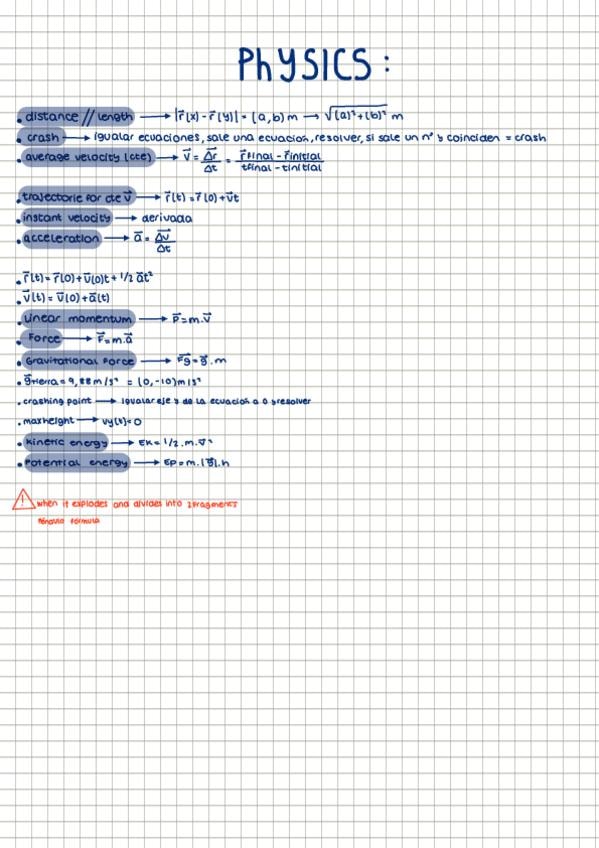 PhYSICS:
• distance // length → |r⃗(x) - r⃗(y)| = (a,b) m → √(a)²+(b)² m
• crash → igualar ecuaciones, sale una ecuación, resolver, si sale un nº y coinciden = crash
• average velocity (cte) → v⃗ = Δr⃗/Δt = r⃗final - r⃗initial / tfinal - tinitial
• trajectorie for cte v⃗ → r⃗(t) = r⃗(0) + v⃗t
• instant velocity → derivada
• acceleration → a⃗ = Δv⃗/Δt
• r⃗(t) = r⃗(0) + v⃗(0)t + 1/2 a⃗t²
• v⃗(t) = v⃗(0) + a⃗(t)
• Linear momentum → P⃗=m.v⃗
• Force → F⃗=m.a⃗
• Gravitational Force → F⃗g=g⃗.m
• g⃗tierra = 9,88 m/s² = (0,-10)m/s²
• crashing point → igualar eje y de la ecuación a 0 y resolver
• max height → vy(x)=0
• Kinetic energy → EK = 1/2.m.v⃗²
• Potential energy → EP=m.|g⃗|.h
! when it explodes and divides into 2 fragments
péndulo fórmula